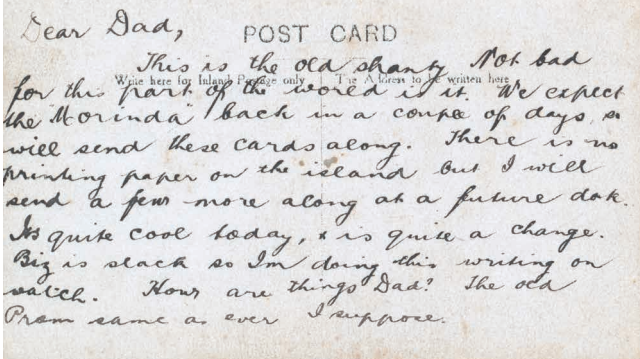 Dear Dad,
POST CARD
This is the old shanty Not bad
Write here for Inland Postage only The Address to be written here
for this part of the world is it. We expect
the "Morinda" back in a couple of days, so
will send these cards along. There is no
printing paper on the island but I will
send a few more along at a future date.
Its quite cool today, & is quite a change.
Biz is slack so Im doing this writing on
watch. How are things Dad? The old
Prom same as ever I suppose.